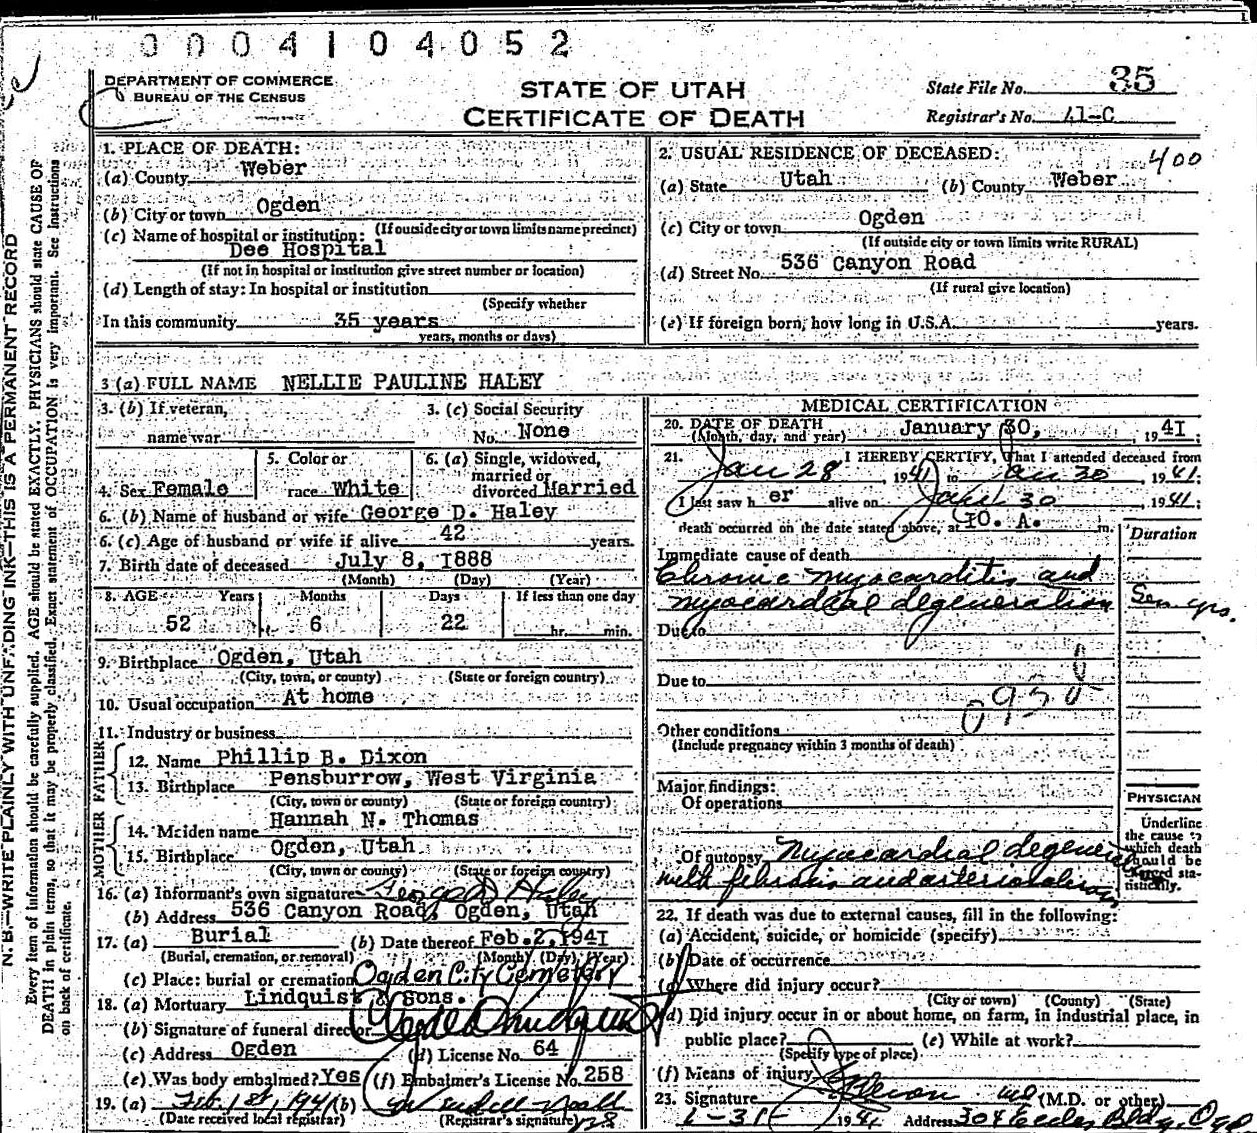 0004104052
DEPARTMENT OF COMMERCE
BUREAU OF THE CENSUS
STATE OF UTAH
CERTIFICATE OF DEATH
State File No. 35
Registrar's No. 41-C
1. PLACE OF DEATH:
(a) County Weber
(b) City or town Ogden
(If outside city or town limits name precinct)
(c) Name of hospital or institution:
Dee Hospital
(If not in hospital or institution give street number or location)
(d) Length of stay: In hospital or institution
(Specify whether
In this community 35 years
years, months or days)
2. USUAL RESIDENCE OF DECEASED: 400
(a) State Utah (b) County Weber
(c) City or town Ogden
(If outside city or town limits write RURAL)
(d) Street No. 536 Canyon Road
(If rural give location)
(e) If foreign born, how long in U.S.A. years.
3 (a) FULL NAME NELLIE PAULINE HALEY
3. (b) If veteran,
name war
3. (c) Social Security
No. None
4. Sex Female
5. Color or
race White
6. (a) Single, widowed,
married or
divorced Married
6. (b) Name of husband or wife George D. Haley
6. (c) Age of husband or wife if alive 42 years.
7. Birth date of deceased July 8, 1888
(Month) (Day) (Year)
8. AGE Years Months Days If less than one day
52 6 22 hr. min.
9. Birthplace Ogden, Utah
(City, town, or county) (State or foreign country)
10. Usual occupation At home
11. Industry or business
FATHER
12. Name Phillip B. Dixon
13. Birthplace Pensburrow, West Virginia
(City, town or county) (State or foreign country)
MOTHER
14. Maiden name Hannah N. Thomas
15. Birthplace Ogden, Utah
(City, town or county) (State or foreign country)
16. (a) Informant's own signature George D Haley
(b) Address 536 Canyon Road, Ogden, Utah
17. (a) Burial (b) Date thereof Feb. 2, 1941
(Burial, cremation, or removal) (Month) (Day) (Year)
(c) Place: burial or cremation Ogden City Cemetery
18. (a) Mortuary Lindquist & Sons.
(b) Signature of funeral director
(c) Address Ogden (d) License No. 64
(e) Was body embalmed? Yes (f) Embalmer's License No. 258
19. (a) Feb. 1st, 1941 (b)
(Date received local registrar) (Registrar's signature)
MEDICAL CERTIFICATION
20. DATE OF DEATH
(Month, day, and year) January 30, , 1941;
21. I HEREBY CERTIFY, That I attended deceased from
Jan 28 , 1941 to Jan 30 , 1941;
I last saw h er alive on Jan 30 , 1941;
death occurred on the date stated above, at 10. A. m.
Duration
Immediate cause of death
Chronic myocarditis and
myocardial degeneration
Sev yrs.
Due to
Due to
Other conditions
(Include pregnancy within 3 months of death)
Major findings:
Of operations
PHYSICIAN
Underline
the cause to
which death
should be
charged sta-
tistically.
Of autopsy Myocardial degener
with fibrosis and arteriosclerosis
22. If death was due to external causes, fill in the following:
(a) Accident, suicide, or homicide (specify)
(b) Date of occurrence
(c) Where did injury occur?
(City or town) (County) (State)
(d) Did injury occur in or about home, on farm, in industrial place, in
public place? (e) While at work?
(Specify type of place)
(f) Means of injury
23. Signature MD (M.D. or other)
1-31- 1941 Address 304 Eccles Bldg, Ogd
N. B.—WRITE PLAINLY WITH UNFADING INK—THIS IS A PERMANENT RECORD
Every item of information should be carefully supplied. AGE should be stated EXACTLY. PHYSICIANS should state CAUSE OF
DEATH in plain terms, so that it may be properly classified. Exact statement of OCCUPATION is very important. See Instructions
on back of certificate.